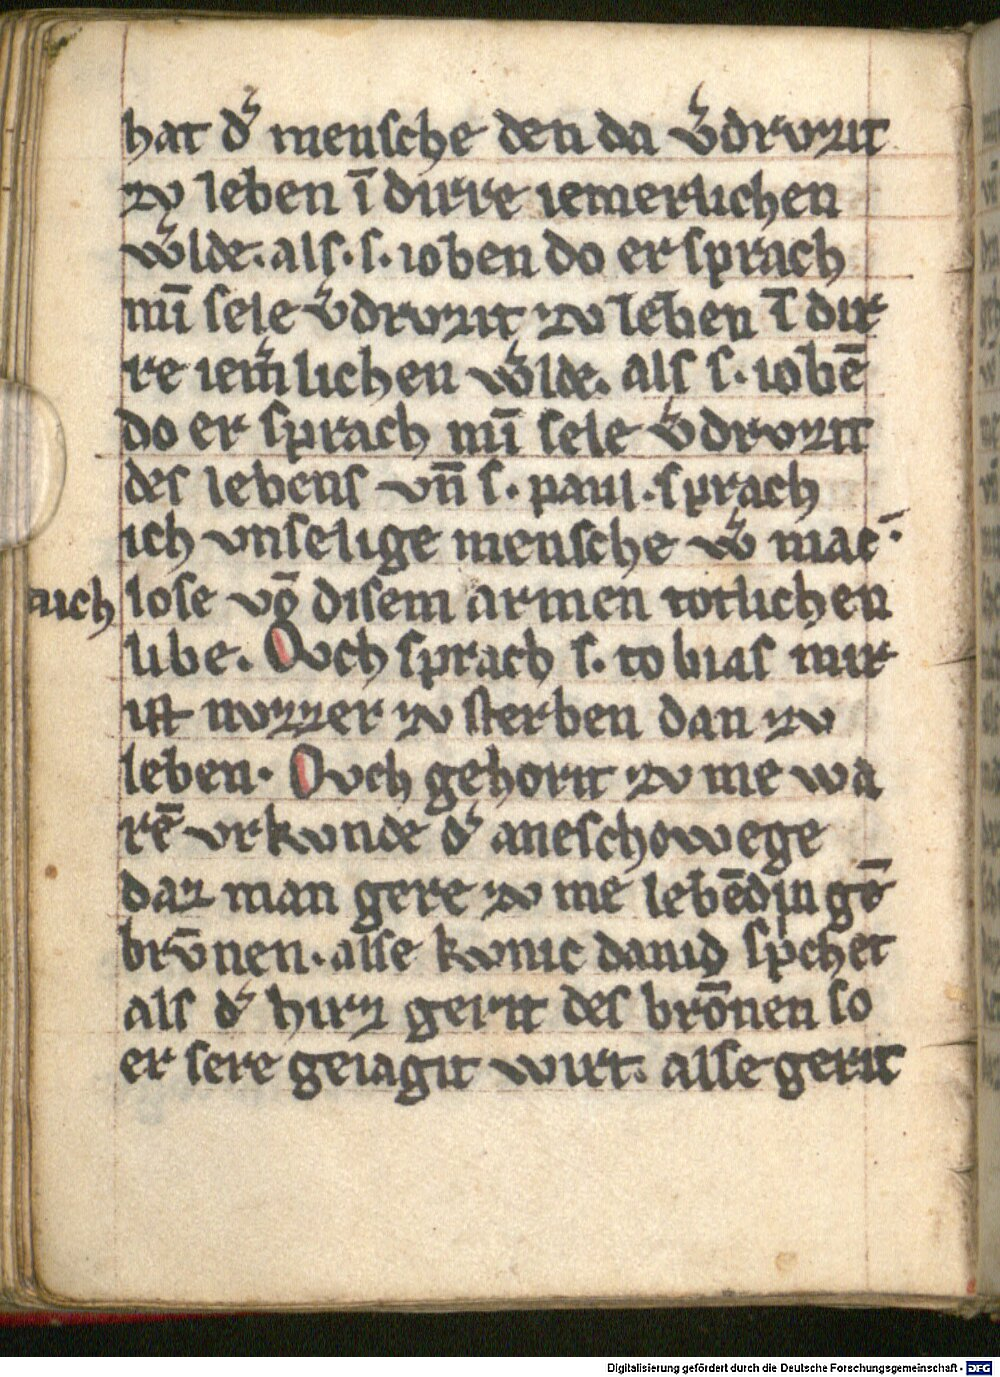 hat d᷑ mensche den da v᷑drvzit
zv leben ī dirre iemerlichen
w᷑lde. als. s. ioben do er sprach
mī sele v᷑drvzit zv leben ī dir
re iem᷑lichen w᷑lde. als s. iobē
do er sprach mī sele v᷑drvzit
des lebens vn̄ s. paul. sprach
ich vnselige mensche w᷑ mac
mich lose vō disem armen totlichen
libe. Ovch sprach s. tobias mir
ist nvzzer zv sterben dan zv
leben. Ovch gehorit zv me wa
rē vrkvnde d᷑ aneschowege
daz man gere zv me lebēdingē
brv̄nen. alse kvnic dauid sp̄chet
als d᷑ hirz gerit des brōnen so
er sere geiagit wirt. alse gerit
Digitalisierung gefördert durch die Deutsche Forschungsgemeinschaft - DFG